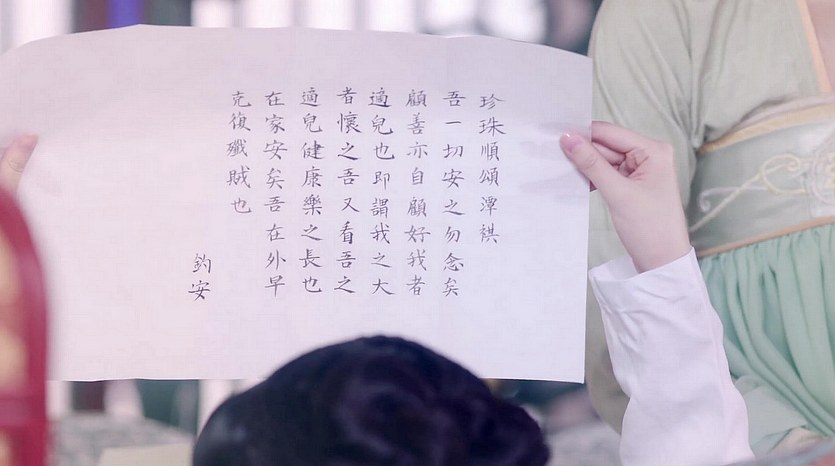 珍珠順頌潭祺
吾一切安之勿念矣
顧善亦自顧好我者
適兒也即謂我之大
者懷之吾又看吾之
適兒健康樂之長也
在家安矣吾在外早
克復殲賊也
鈞安